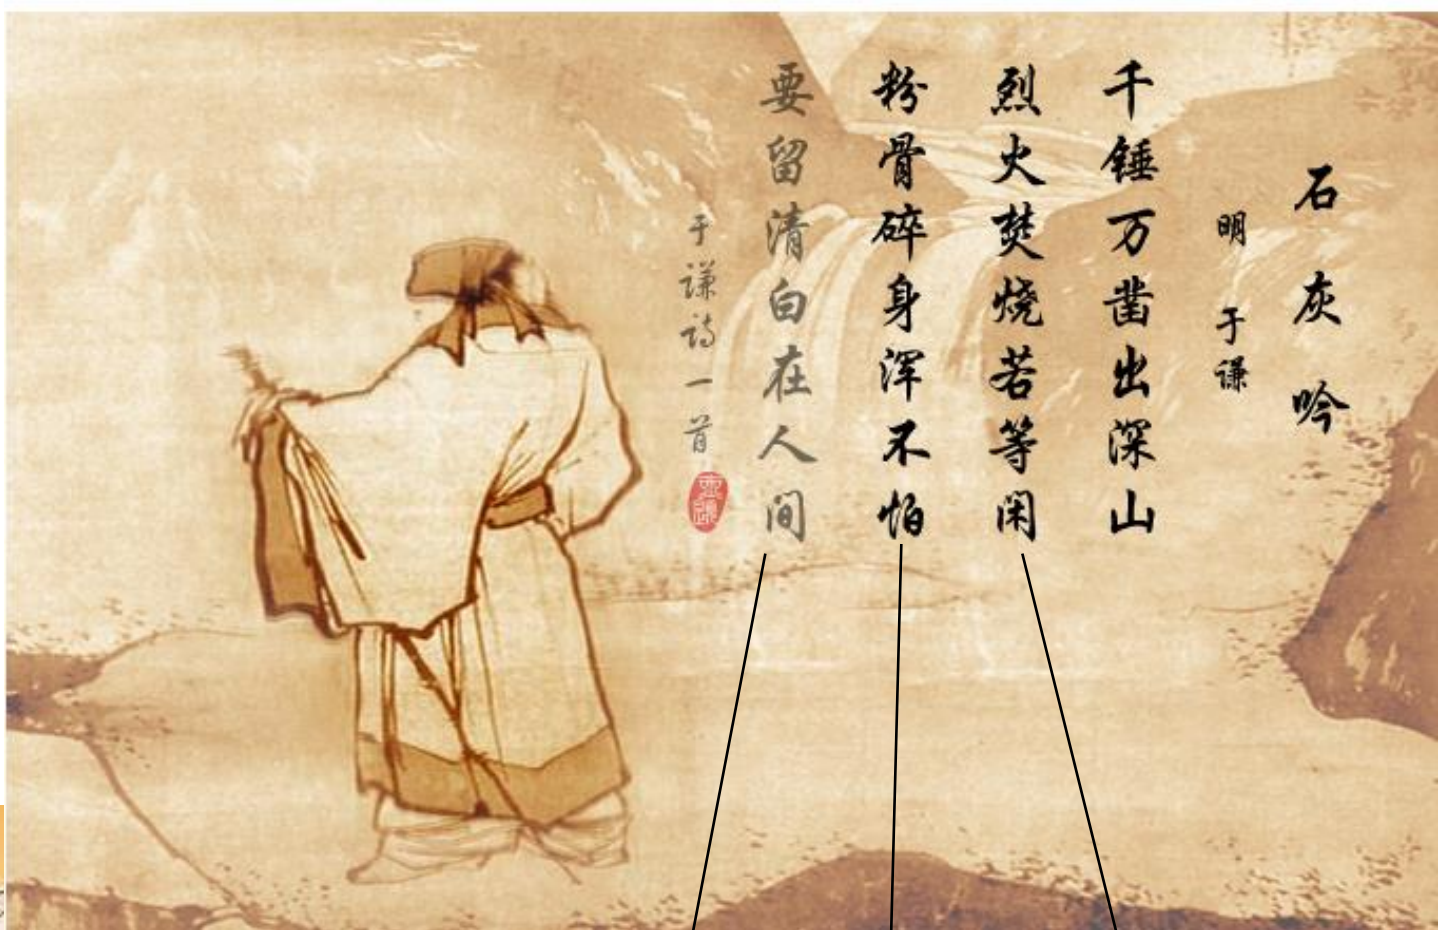 石灰吟
明 于谦
千锤万凿出深山
烈火焚烧若等闲
粉骨碎身浑不怕
要留清白在人间
于谦诗一首